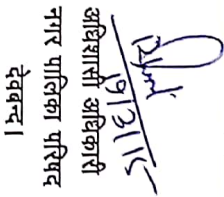 19/3/15
अधिशासी अधिकारी
नगर पालिका परिषद
देवबन्द।